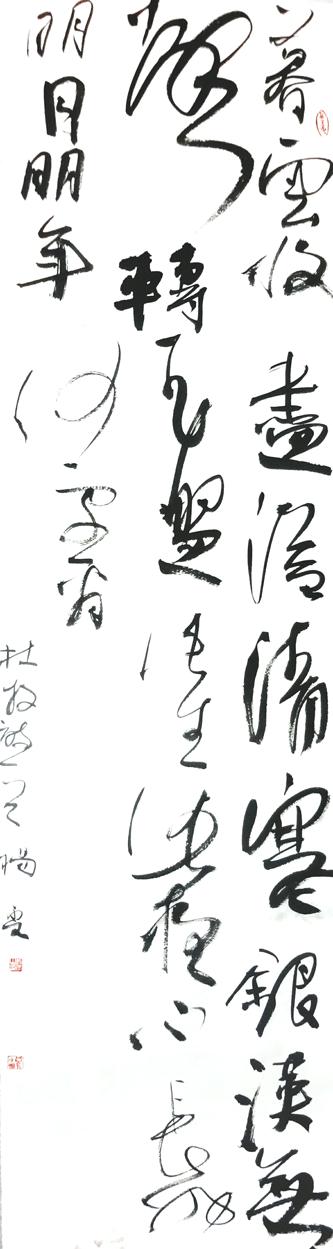 暮雲收盡溢清寒銀漢無
聲轉玉盤此生此夜不長好
明月明年何處看
杜牧詩